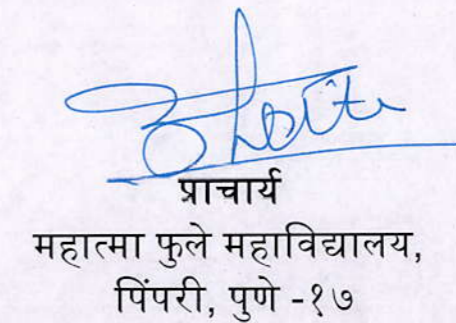 प्राचार्य
महात्मा फुले महाविद्यालय,
पिंपरी, पुणे -१७